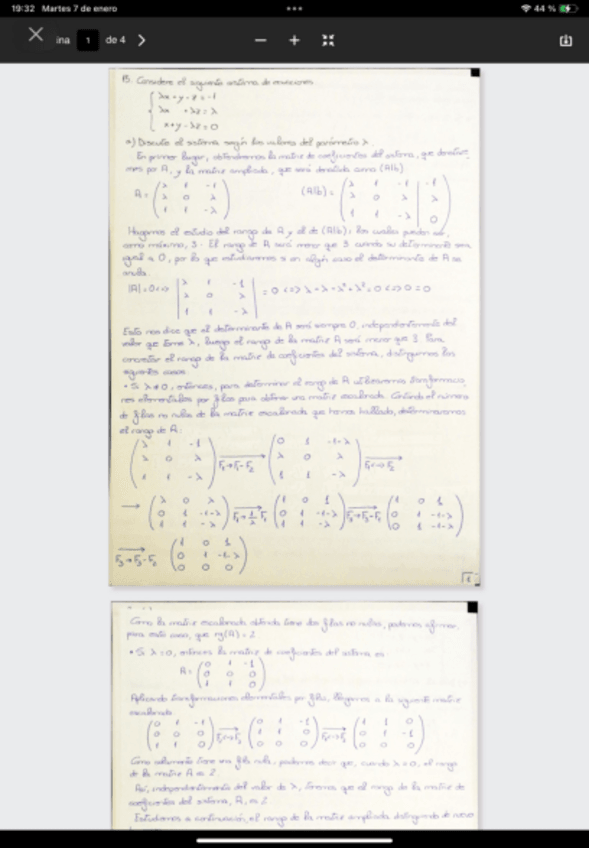 19:32 Martes 7 de enero
44 %
ina 1 de 4
B. Considere el siguiente sistema de ecuaciones
λx + y - z = -1
λx + λz = λ
x + y - λz = 0
a) Discute el sistema según los valores del parámetro λ.
En primer lugar, obtendremos la matriz de coeficientes del sistema, que denotare-
mos por A, y la matriz ampliada, que será denotada como (A|b):
A = ( λ 1 -1 (A|b) = ( λ 1 -1 | -1
λ 0 λ λ 0 λ | λ
1 1 -λ ) 1 1 -λ | 0 )
Hagamos el estudio del rango de A y el de (A|b), los cuales pueden ser,
como máximo, 3. El rango de A será menor que 3 cuando su determinante sea
igual a 0, por lo que estudiaremos si en algún caso el determinante de A se
anula.
|A| = 0 <=> | λ 1 -1
λ 0 λ
1 1 -λ | = 0 <=> λ - λ + λ² - λ² = 0 <=> 0 = 0
Esto nos dice que el determinante de A será siempre 0, independientemente del
valor que tome λ, luego el rango de la matriz A será menor que 3. Para
concretar el rango de la matriz de coeficientes del sistema, distinguimos los
siguientes casos:
• Si λ ≠ 0, entonces, para determinar el rango de A utilizaremos transformacio-
nes elementales por filas para obtener una matriz escalonada. Contando el número
de filas no nulas de la matriz escalonada que hemos hallado, determinaremos
el rango de A:
( λ 1 -1 ( 0 1 -1-λ
λ 0 λ F₁→F₁-F₂ λ 0 λ F₁↔F₂
1 1 -λ ) 1 1 -λ )
→ ( λ 0 λ ( 1 0 1 ( 1 0 1
0 1 -1-λ F₁→1/λ F₁ 0 1 -1-λ F₃→F₃-F₁ 0 1 -1-λ
1 1 -λ ) 1 1 -λ ) 0 1 -1-λ )
F₃→F₃-F₂ ( 1 0 1
0 1 -1-λ
0 0 0 )
1
Como la matriz escalonada obtenida tiene dos filas no nulas, podemos afirmar,
para este caso, que rg(A) = 2
• Si λ = 0, entonces la matriz de coeficientes del sistema es
A = ( 0 1 -1
0 0 0
1 1 0 )
Aplicando transformaciones elementales por filas, llegamos a la siguiente matriz
escalonada
( 0 1 -1 ( 0 1 -1 ( 1 1 0
0 0 0 F₂↔F₃ 1 1 0 F₁↔F₂ 0 1 -1
1 1 0 ) 0 0 0 ) 0 0 0 )
Como solamente tiene una fila nula, podemos decir que, cuando λ = 0, el rango
de la matriz A es 2
Así, independientemente del valor de λ, tenemos que el rango de la matriz de
coeficientes del sistema, A, es 2
Estudiamos a continuación, el rango de la matriz ampliada distinguiendo de nuevo